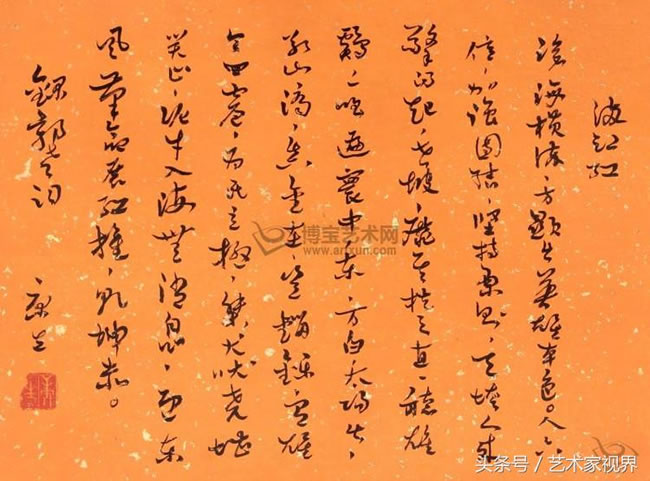 满江红
沧海横流,方显出英雄本色。人六
亿,加强团结,坚持原则,天垮下来
擎得起,世披靡矣扶之直,听雄
鸡一唱遍寰中,东方白,太阳出,
冰山滴,真金在,岂销铄,有雄
文四卷,为民立极,桀犬吠尧堪
笑止,泥牛入海无消息,迎东
风革命展红旗,乾坤赤。
录郭老词
康生
博宝艺术网
artxun.com
头条号/艺术家视界